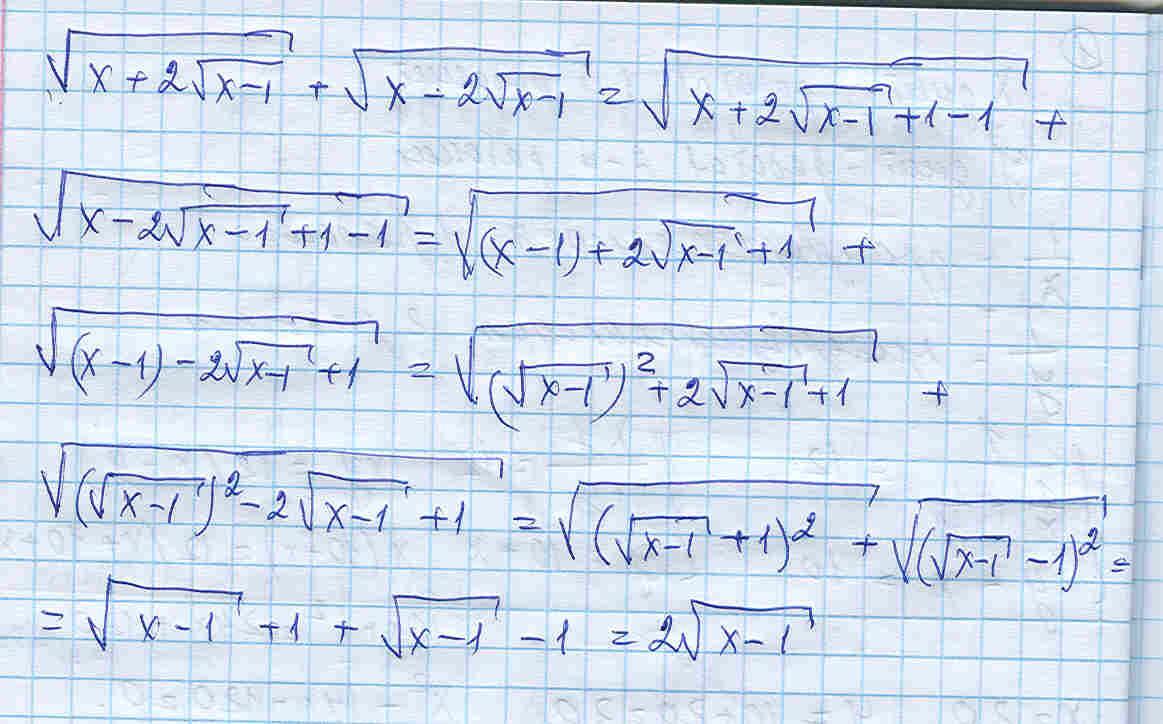 √(x + 2√(x-1)) + √(x - 2√(x-1)) = √(x + 2√(x-1) + 1 - 1) +
√(x - 2√(x-1) + 1 - 1) = √((x - 1) + 2√(x-1) + 1) +
√((x - 1) - 2√(x-1) + 1) = √((√(x-1))² + 2√(x-1) + 1) +
√((√(x-1))² - 2√(x-1) + 1) = √((√(x-1) + 1)²) + √((√(x-1) - 1)²) =
= √(x-1) + 1 + √(x-1) - 1 = 2√(x-1)